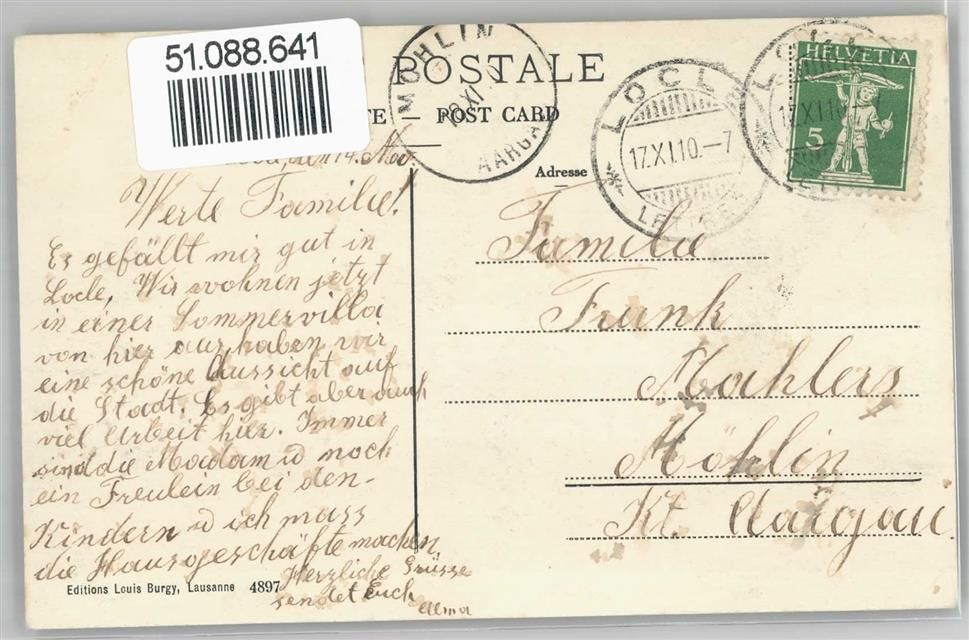 51.088.641
POSTALE
POST CARD
MÖHLIN
AARGA
LOCLE
17.XI.10.–7
LETTRES
HELVETIA
5
Adresse
den 14. Nov.
Werte Familie!
Es gefällt mir gut in
Locle, Wir wohnen jetzt
in einer Sommervilla
von hier aus haben wir
eine schöne Aussicht auf
die Stadt. Es gibt aber auch
viel Arbeit hier. Immer
sind die Madam u noch
ein Freulein bei den-
Kindern u ich muss
die Hausgeschäfte machen
Herzliche Grüsse
sendet Euch
Alma
Familie
Frunk
Mahlers
Möhlin
Kt. Aargau.
Editions Louis Burgy, Lausanne 4897